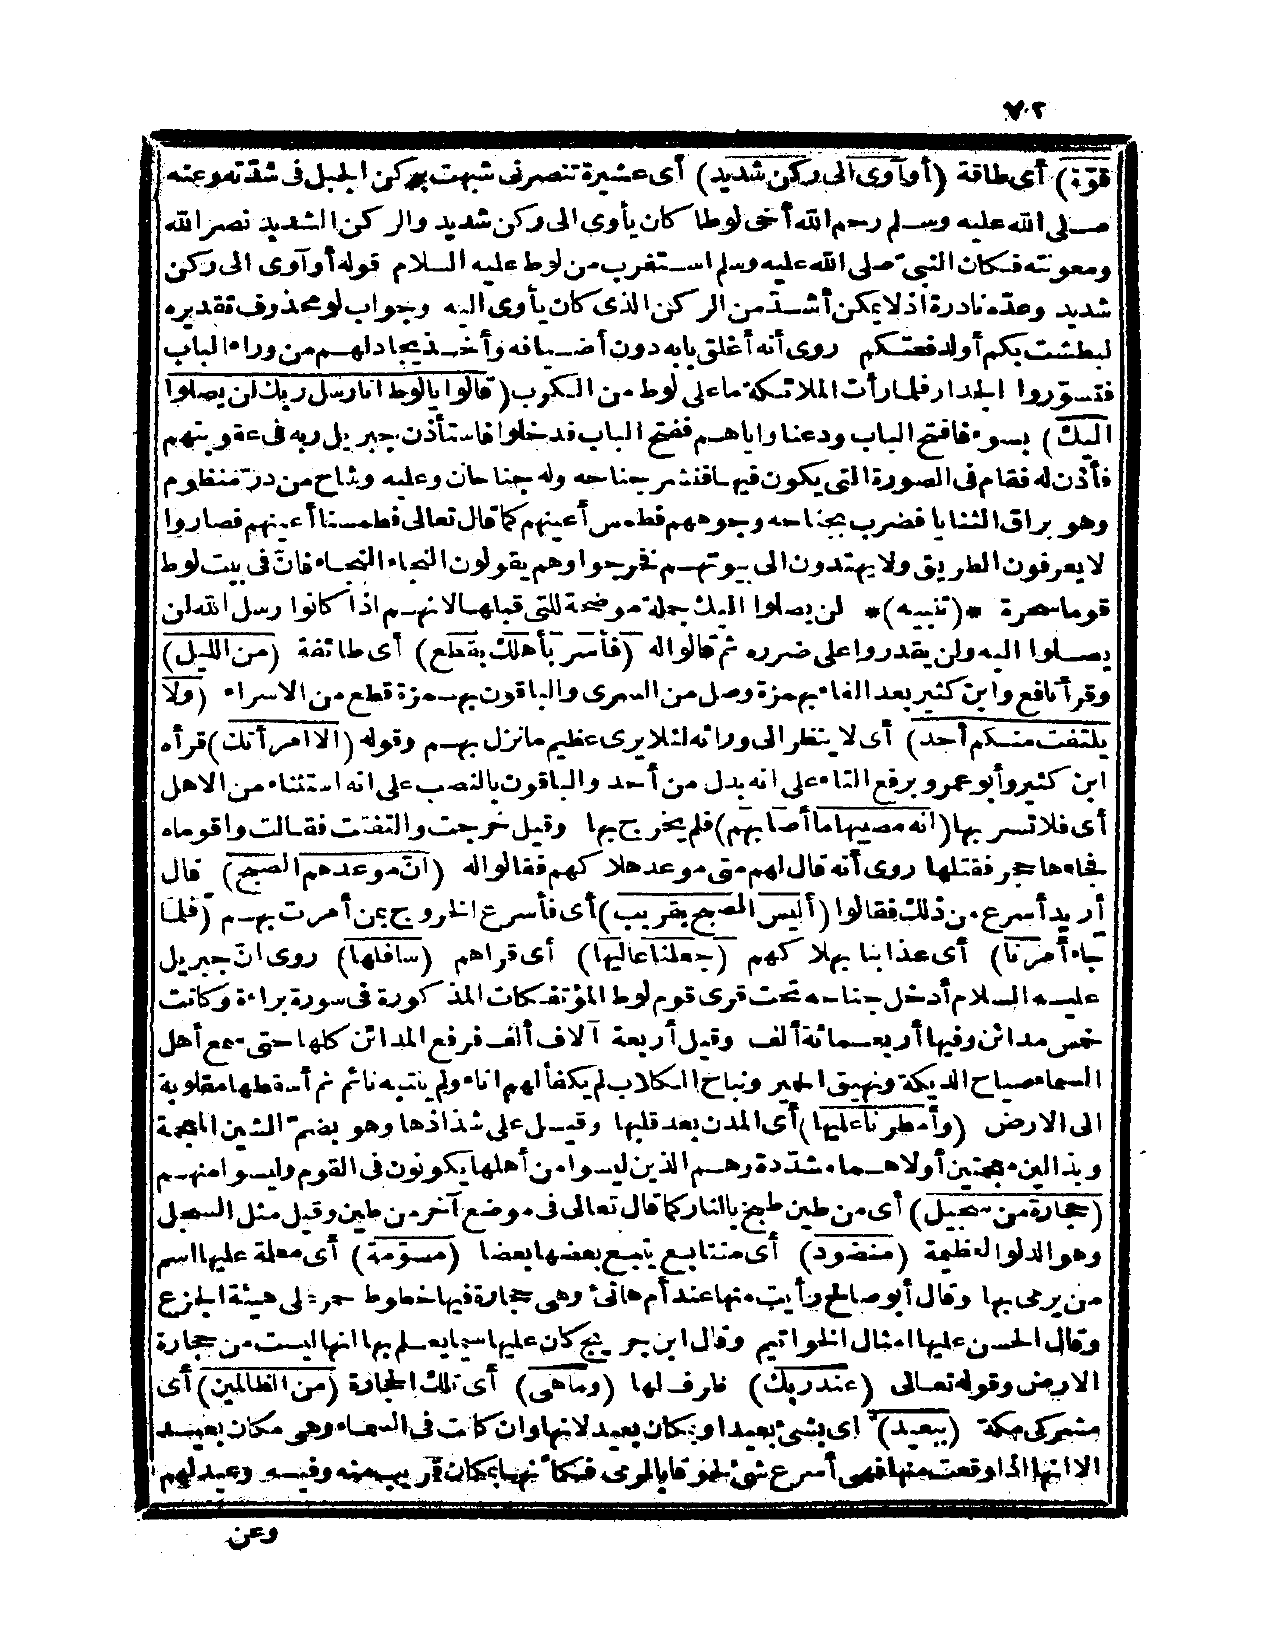 ٧٠٢
قوّة) أى طاقة (أو آوى الى ركن شديد) أى عشيرة تنصرنى شبهت بركن الجبل فى شدّته وعنه
صلى الله عليه وسلم رحم الله أخى لوطا كان يأوى الى ركن شديد والركن الشديد نصر الله
ومعونته فكان النبىّ صلى الله عليه وسلم استغرب من لوط عليه السلام قوله أو آوى الى ركن
شديد وعدّه نادرة اذ لا يمكن أشدّ من الركن الذى كان يأوى اليه وجواب لو محذوف تقديره
لبطشت بكم أو لدفعتكم روى أنه أغلق بابه دون أضيافه وأخذ يجادلهم من وراء الباب
فتسوّروا الجدار فلما رأت الملائكة ما على لوط من الكرب (قالوا يالوط انا رسل ربك لن يصلوا
اليك) بسوء فافتح الباب ودعنا واياهم ففتح الباب فدخلوا فاستأذن جبريل ربه فى عقوبتهم
فأذن له فقام فى الصورة التى يكون فيها فنشر جناحه وله جناحان وعليه وشاح من درّ منظوم
وهو براق الثنايا فضرب بجناحه وجوههم فطمس أعينهم كما قال تعالى فطمسنا أعينهم فصاروا
لا يعرفون الطريق ولا يهتدون الى بيوتهم فخرجوا وهم يقولون النجاء النجاء فانّ فى بيت لوط
قوما سحرة *(تنبيه)* لن يصلوا اليك جملة موضحة للتى قبلها لانهم اذا كانوا رسل الله لن
يصلوا اليه ولن يقدروا على ضرره ثم قالوا له (فأسر بأهلك بقطع) أى طائفة (من الليل)
وقرأ نافع وابن كثير بعد الفاء بهمزة وصل من السرى والباقون بهمزة قطع من الاسراء (ولا
يلتفت منكم أحد) أى لا ينظر الى ورائه لئلا يرى عظيم ما نزل بهم وقوله (الا امرأتك) قرأه
ابن كثير وأبو عمرو برفع التاء على انه بدل من أحد والباقون بالنصب على انه استثناء من الاهل
أى فلا تسر بها (انه مصيبها ما أصابهم) فلم يخرج بها وقيل خرجت والتفتت فقالت واقوماه
فجاءها حجر فقتلها روى أنه قال لهم متى موعد هلاكهم فقالوا له (انّ موعدهم الصبح) قال
أريد أسرع من ذلك فقالوا (أليس الصبح بقريب) أى فأسرع الخروج بمن أمرت بهم (فلما
جاء أمرنا) أى عذابنا بهلاكهم (جعلنا عاليها) أى قراهم (سافلها) روى انّ جبريل
عليه السلام أدخل جناحه تحت قرى قوم لوط المؤتفكات المذكورة فى سورة براءة وكانت
خمس مدائن وفيها أربعمائة ألف وقيل أربعة آلاف ألف فرفع المدائن كلها حتى سمع أهل
السماء صياح الديكة ونهيق الحمير ونباح الكلاب لم يكفأ لهم اناء ولم ينتبه نائم ثم أسقطها مقلوبة
الى الارض (وأمطرنا عليها) أى المدن بعد قلبها وقيل على شذاذها وهو بضم الشين المعجمة
وبذالين معجمتين أولاهما مشدّدة وهم الذين ليسوا من أهلها يكونون فى القوم وليسوا منهم
(حجارة من سجيل) أى من طين طبخ بالنار كما قال تعالى فى موضع آخر من طين وقيل مثل السجل
وهو الدلو العظيمة (منضود) أى متتابع يتبع بعضها بعضا (مسوّمة) أى معلمة عليها اسم
من يرمى بها وقال أبو صالح رأيت منها عند أم هانئ وهى حجارة فيها خطوط حمر على هيئة الجزع
وقال الحسن عليها امثال الخواتيم وقال ابن جريج كان عليها سيما يعلم بها انها ليست من حجارة
الارض وقوله تعالى (عند ربك) ظرف لها (وما هى) أى تلك الحجارة (من الظالمين) أى
مشركى مكة (ببعيد) اى بشئ بعيد او بمكان بعيد لانها وان كانت فى السماء وهى مكان بعيد
الا انها اذا وقعت منها فهى أسرع شئ لحوقا بالمرمى فكأنها بمكان قريب منه وفيه وعيد لهم
وعن